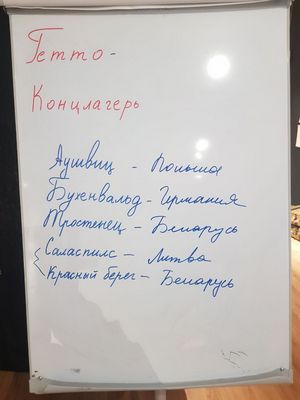 Гетто -
Концлагерь
Аушвиц - Польша
Бухенвальд - Германия
Тростенец - Беларусь
Саласпилс - Литва
Красный берег - Беларусь